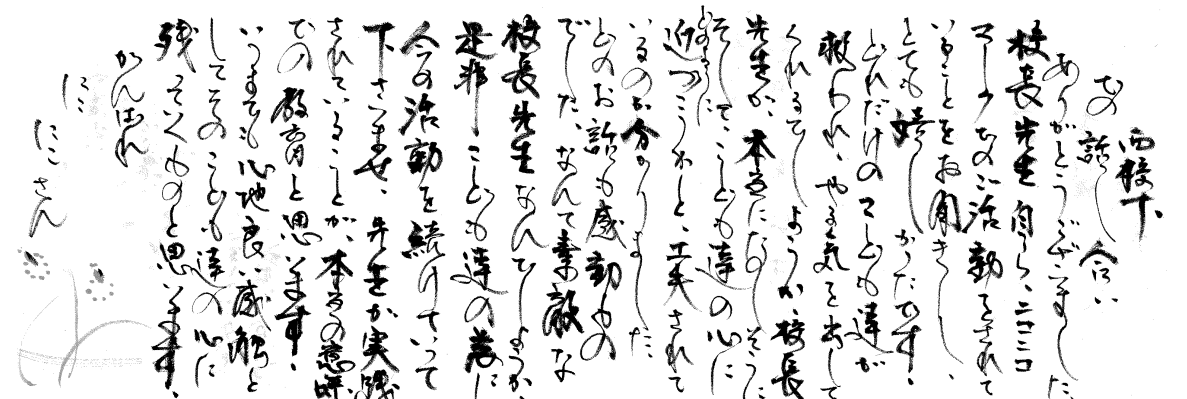 校下
その話し合い
ありがとうございました
校長先生自ら、ニコニコ
マークのご活動をされて
いることをお聞きし、
とても嬉しかったです。
どれだけの子ども達が
救われ、やる気を出して
くれるでしょうか。校長
先生が、本気になり
そして、子ども達の心に
近づこうと、工夫されて
いるのが分かりました。
そのお話も感動もの
でした。なんて素敵な
校長先生なんでしょうか。
是非子ども達の為に
今の活動を続けていって
下さいませ。先生が実践
されていることが、本当の意味
での教育と思います。
いつまでも心地良い感触と
してその子ども達の心に
残っていくものと思います。
がんばれ
にこ
にこさん